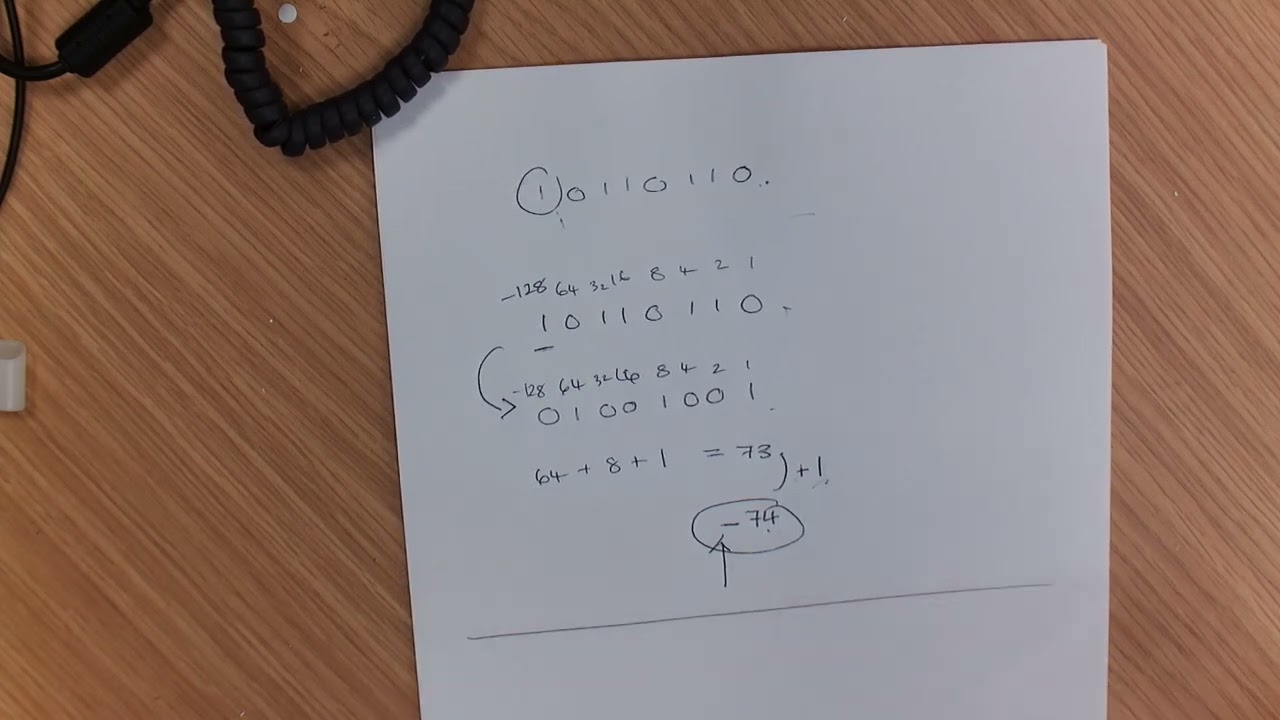 1 0 1 1 0 1 1 0
-128 64 32 16 8 4 2 1
1 0 1 1 0 1 1 0
-128 64 32 16 8 4 2 1
0 1 0 0 1 0 0 1
64 + 8 + 1 = 73 ) + 1
-74